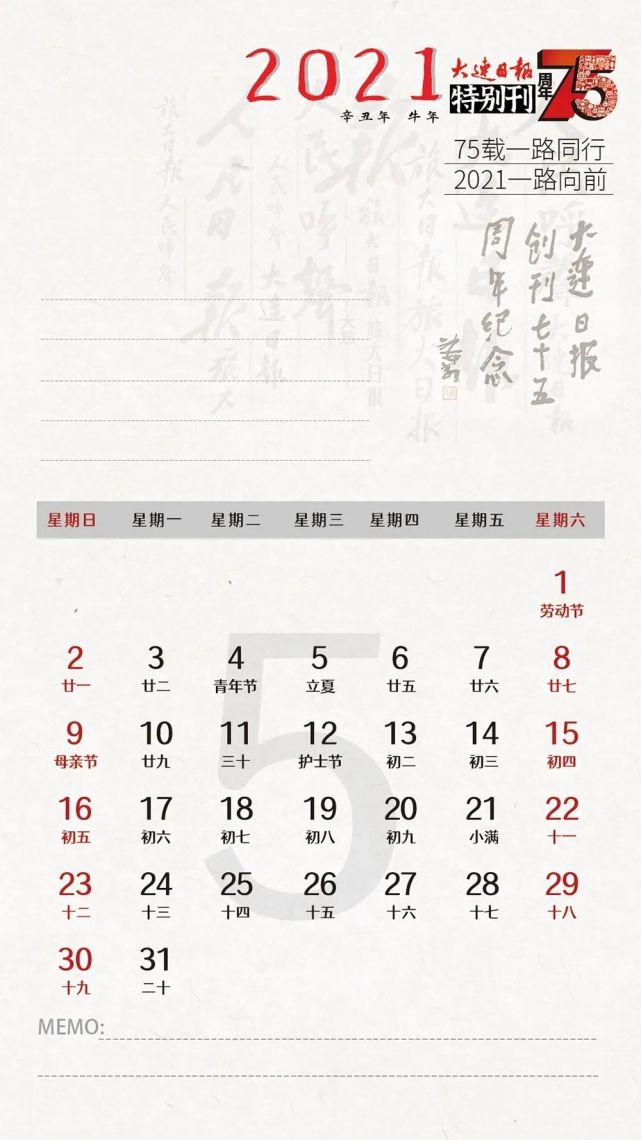 2021
辛丑年 牛年
大连日报
特别刊
周年
75
75载一路同行
2021一路向前
大连日报
创刊七十五
周年纪念
星期日 星期一 星期二 星期三 星期四 星期五 星期六
1
劳动节
2 3 4 5 6 7 8
廿一 廿二 青年节 立夏 廿五 廿六 廿七
9 10 11 12 13 14 15
母亲节 廿九 三十 护士节 初二 初三 初四
16 17 18 19 20 21 22
初五 初六 初七 初八 初九 小满 十一
23 24 25 26 27 28 29
十二 十三 十四 十五 十六 十七 十八
30 31
十九 二十
5
MEMO: